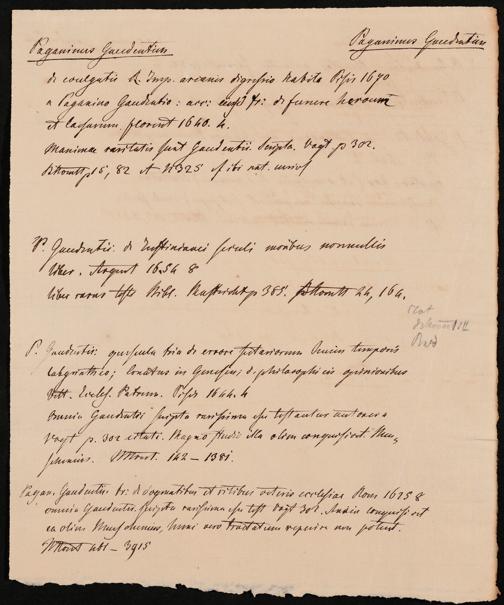 Paganinus Gaudentius
Paganinus Gaudentius
de evulgatis R. Imp. arcanis digressio habita Pisis 1670
a Paganino Gaudentio: acc: tr: de funere heroum
et Caesarum. florent 1640. 4.
Maximae raritatis sunt Gaudentii Scripta. Vogt p 302.
p 15, 82 et N 325 ibi not.
P. Gaudentii: de Justinianei seculi moribus nonnullis
liber. Argent 1654 8
liber rarus teste Bibl. p 385. 24, 164.
P. Gaudentii: opuscula tria de errore sectariorum hujus temporis
labyrintheo; Conatus in Genesin; d. philosophicis opinionibus
Vett. Eccles. Patrum. Pisis 1644. 4
Omnia Gaudentii Scripta rarissima esse testantur autores a
Vogt p. 302 citati. Magno studio illa olim conquisivit
142 – 1381.
Pagan. Gaudentii: tr: de dogmatibus et ritibus veteris ecclesiae Rom 1625 8
omnia Gaudentii scripta rarissima esse test Vogt 302. conquisivit
ea olim hunc vero tractatum reperire non potuit.
461 – 3915